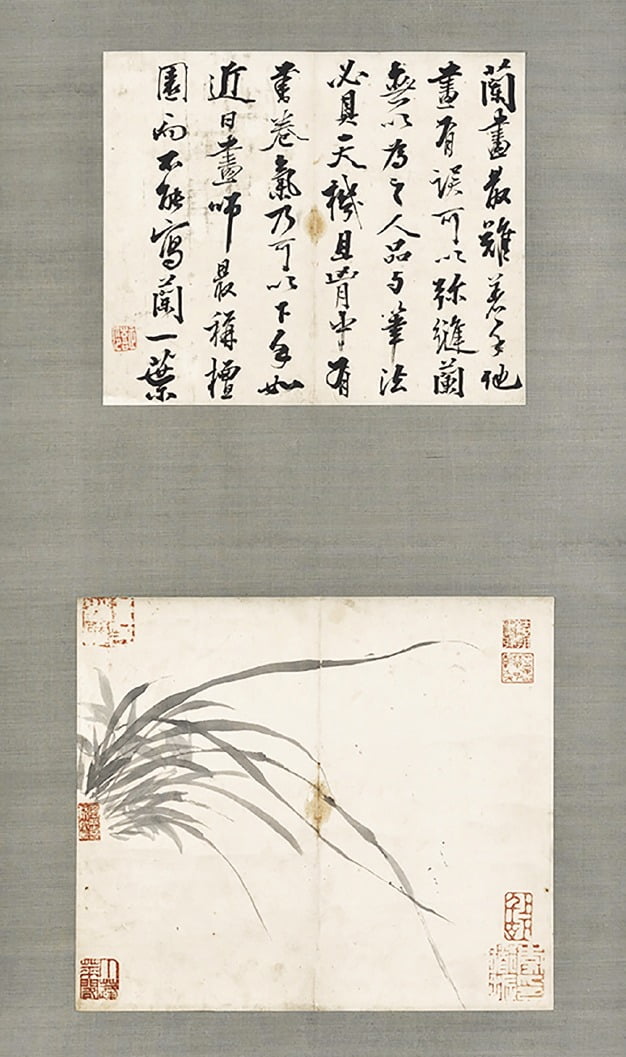 蘭畫最難着手他
畫有誤可以弥縫蘭
無以為之人品与筆法
必具天機且胷中有
書卷氣乃可以下手如
近日畫師最稱檀
園而不能寫蘭一葉